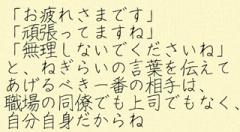 「お疲れさまです」
「頑張ってますね」
「無理しないでくださいね」
と、ねぎらいの言葉を伝えて
あげるべき一番の相手は、
職場の同僚でも上司でもなく、
自分自身だからね